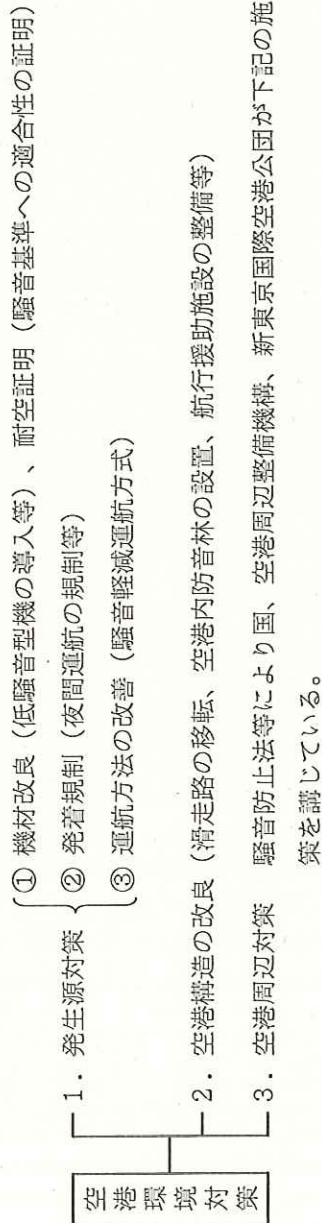 空港環境対策
1．発生源対策
① 機材改良（低騒音型機の導入等）、耐空証明（騒音基準への適合性の証明）
② 発着規制（夜間運航の規制等）
③ 運航方法の改善（騒音軽減運航方式）
2．空港構造の改良（滑走路の移転、空港内防音林の設置、航行援助施設の整備等）
3．空港周辺対策　騒音防止法等により国、空港周辺整備機構、新東京国際空港公団が下記の施
策を講じている。